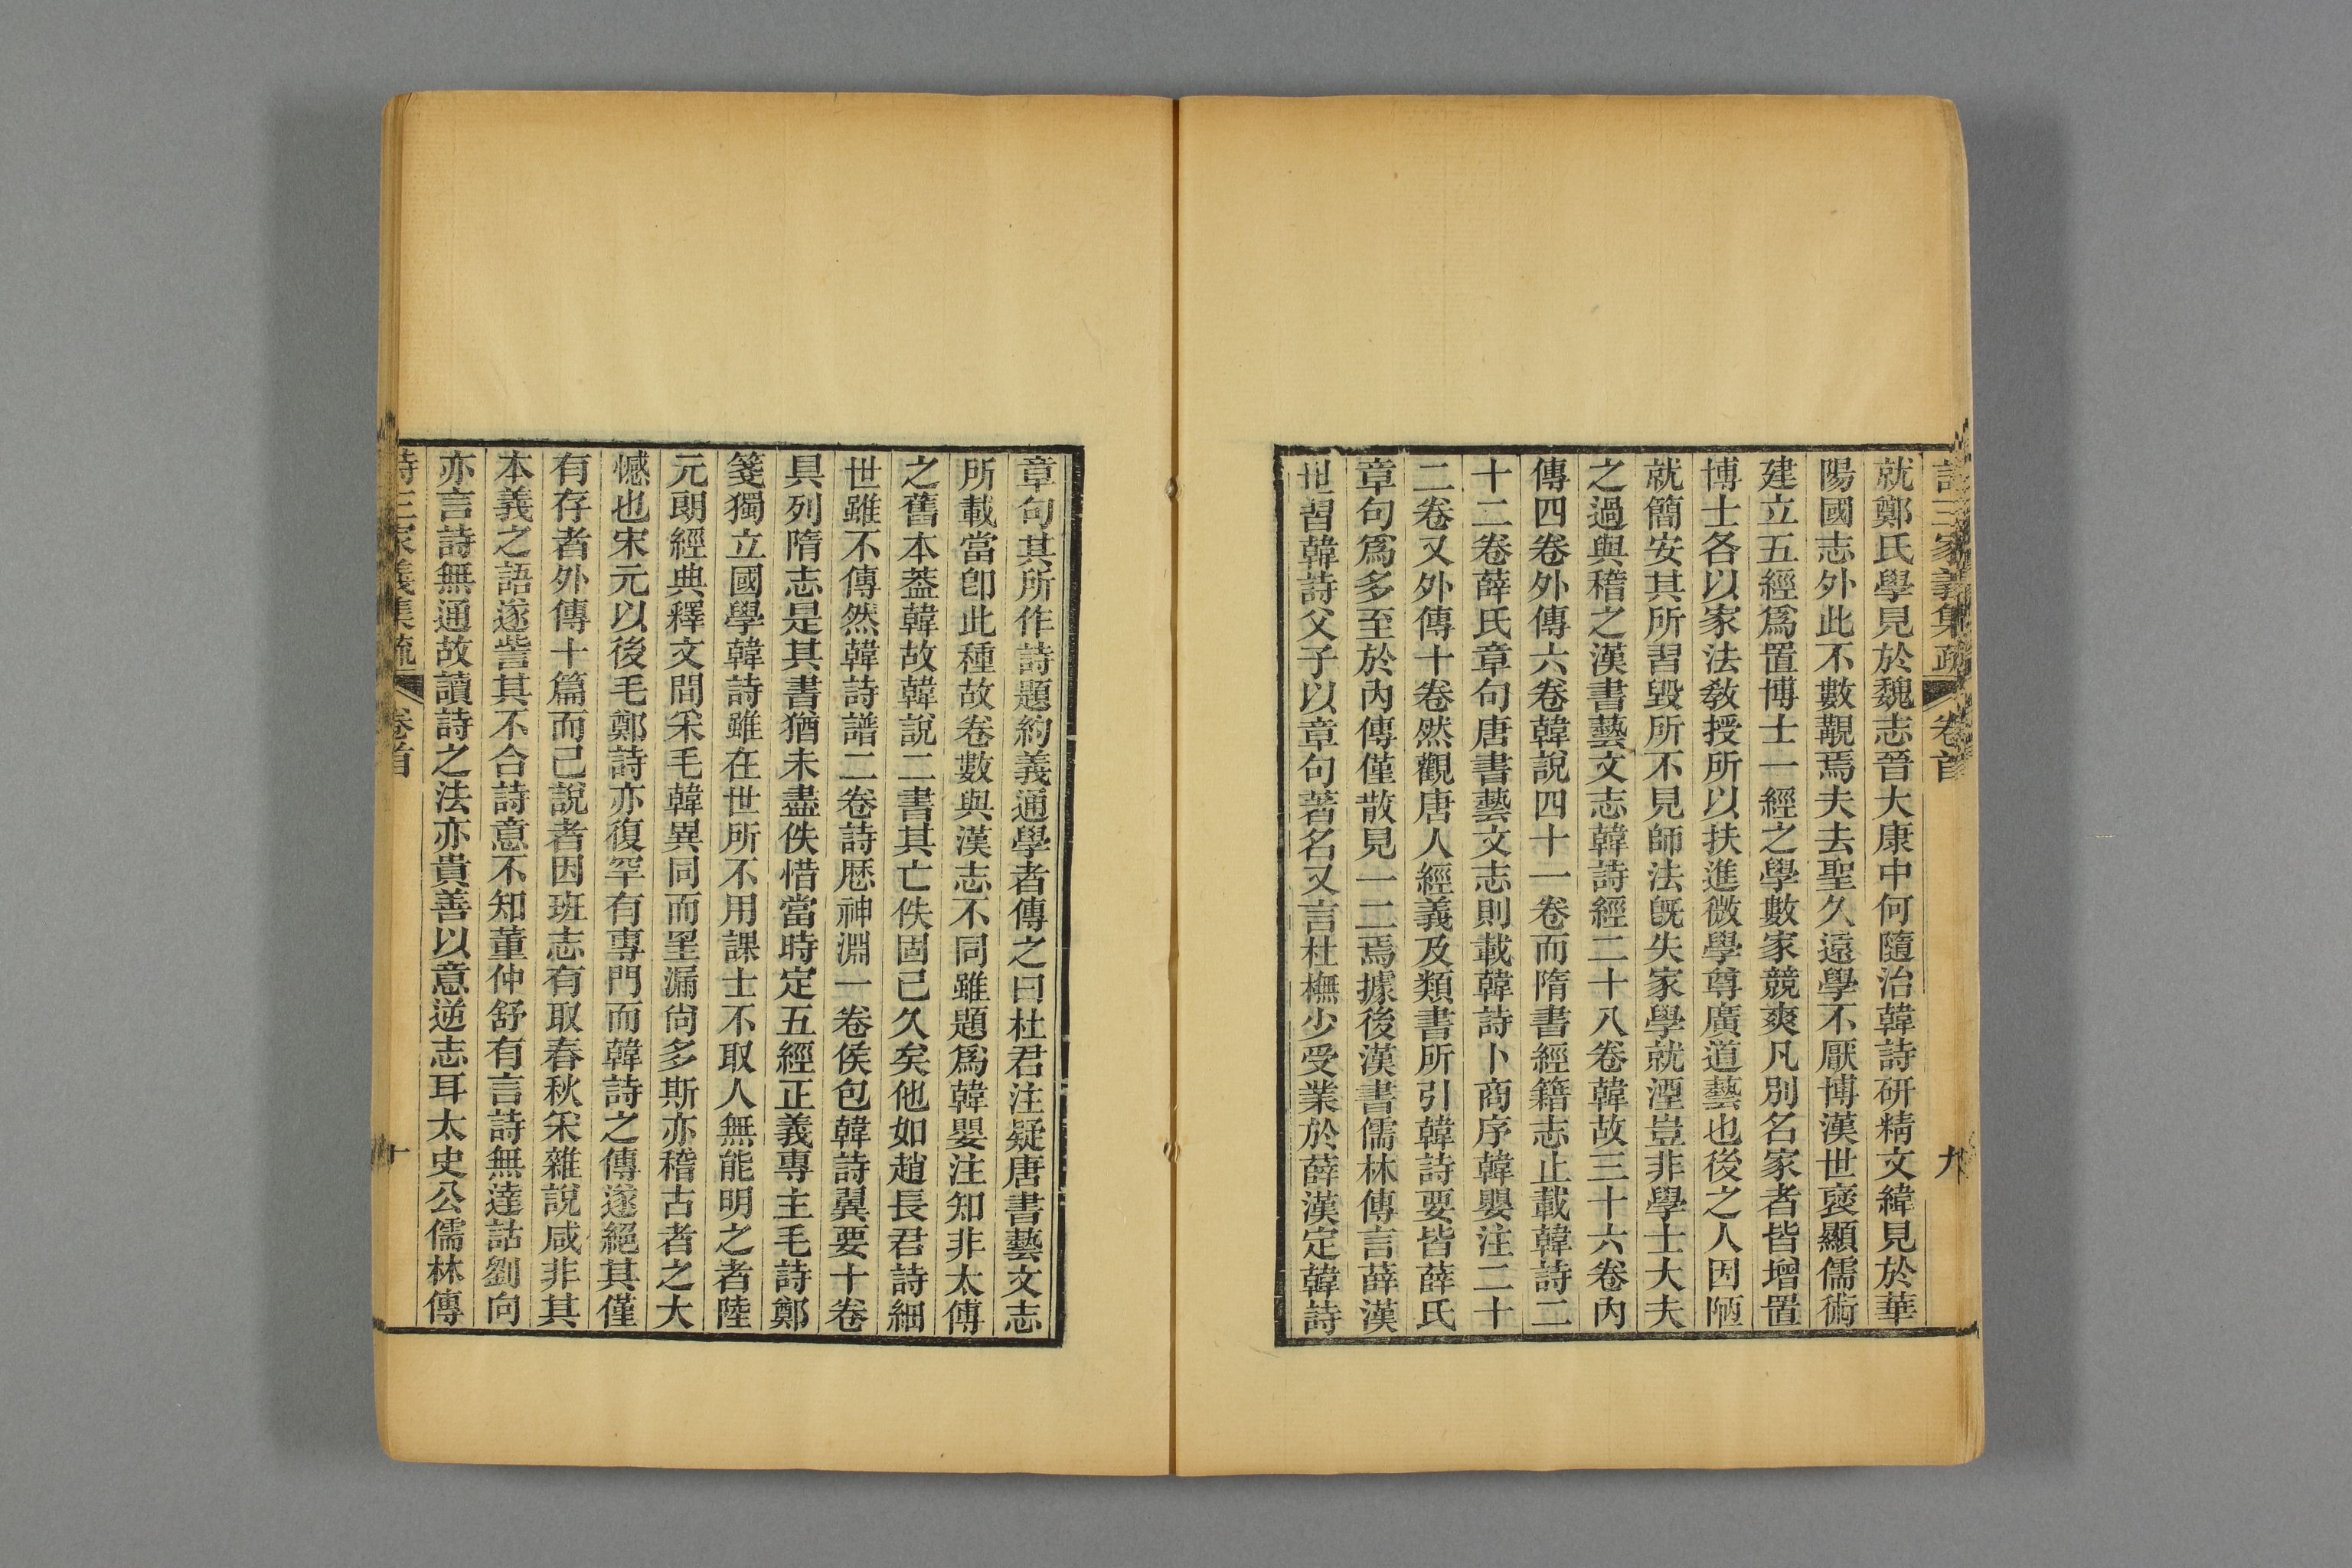 詩三家義集疏 卷首 九
就鄭氏學見於魏志晉大康中何隨治韓詩研精文緯見於華
陽國志外此不數觀焉夫去聖久遠學不厭博漢世襃顯儒術
建立五經爲置博士一經之學數家競爽凡別名家者皆增置
博士各以家法敎授所以扶進微學尊廣道藝也後之人因陋
就簡安其所習毀所不見師法旣失家學就湮豈非學士大夫
之過與稽之漢書藝文志韓詩經二十八卷韓故三十六卷內
傳四卷外傳六卷韓說四十一卷而隋書經籍志止載韓詩二
十二卷薛氏章句唐書藝文志則載韓詩卜商序韓嬰注二十
二卷又外傳十卷然觀唐人經義及類書所引韓詩要皆薛氏
章句爲多至於內傳僅散見一二焉據後漢書儒林傳言薛漢
世習韓詩父子以章句著名又言杜橅少受業於薛漢定韓詩
章句其所作詩題約義通學者傳之曰杜君注疑唐書藝文志
所載當卽此種故卷數與漢志不同雖題爲韓嬰注知非太傅
之舊本葢韓故韓說二書其亡佚固已久矣他如趙長君詩細
世雖不傳然韓詩譜二卷詩厯神淵一卷侯包韓詩翼要十卷
具列隋志是其書猶未盡佚惜當時定五經正義專主毛詩鄭
箋獨立國學韓詩雖在世所不用課士不取人無能明之者陸
元朗經典釋文間采毛韓異同而罣漏尙多斯亦稽古者之大
憾也宋元以後毛鄭詩亦復罕有專門而韓詩之傳遂絕其僅
有存者外傳十篇而已說者因班志有取春秋采雜說咸非其
本義之語遂訾其不合詩意不知董仲舒有言詩無達詁劉向
亦言詩無通故讀詩之法亦貴善以意逆志耳太史公儒林傳
詩三家義集疏 卷首 十